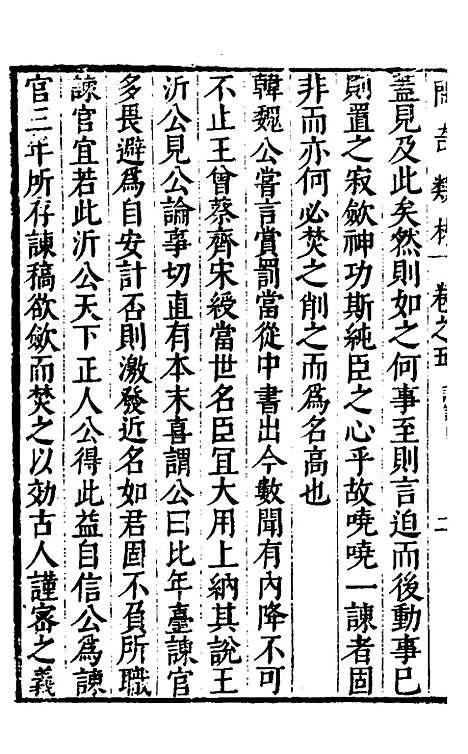 卷之五
蓋見及此矣然則如之何事至則言迫而後動事已
則置之寂歛神功斯純臣之心乎故嘵嘵一諫者固
非而亦何必焚之削之而爲名高也
韓魏公嘗言賞罰當從中書出今數聞有內降不可
不止王曾蔡齊宋綬當世名臣冝大用上納其說王
沂公見公論事切直有本末喜謂公曰比年臺諫官
多畏避爲自安計否則激發近名如君固不負所職
諫官宜若此沂公天下正人公得此益自信公爲諫
官三年所存諫稿欲歛而焚之以効古人謹審之義